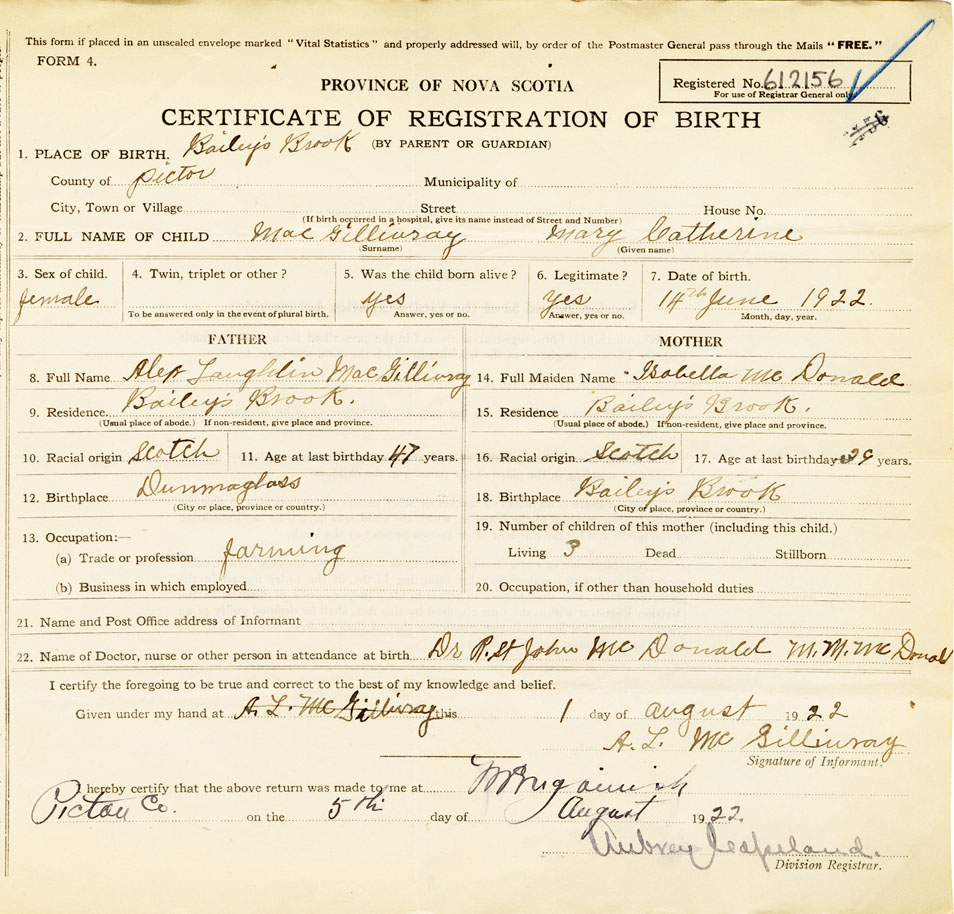 This form if placed in an unsealed envelope marked "Vital Statistics" and properly addressed will, by order of the Postmaster General pass through the Mails "FREE."
FORM 4.
PROVINCE OF NOVA SCOTIA
Registered No. 612156
For use of Registrar General only.
CERTIFICATE OF REGISTRATION OF BIRTH
(BY PARENT OR GUARDIAN)
1. PLACE OF BIRTH. Bailey's Brook
County of Pictou Municipality of
City, Town or Village Street House No.
(If birth occurred in a hospital, give its name instead of Street and Number)
2. FULL NAME OF CHILD Mac Gillivray Mary Catherine
(Surname) (Given name)
3. Sex of child. 4. Twin, triplet or other? 5. Was the child born alive? 6. Legitimate? 7. Date of birth.
female yes yes 14th June 1922.
To be answered only in the event of plural birth. Answer, yes or no. Answer, yes or no. Month, day, year.
FATHER
8. Full Name Alex Laughlin Mac Gillivray
9. Residence Bailey's Brook.
(Usual place of abode.) If non-resident, give place and province.
10. Racial origin Scotch 11. Age at last birthday 47 years.
12. Birthplace Dunmaglass
(City or place, province or country.)
13. Occupation:—
(a) Trade or profession farming
(b) Business in which employed
MOTHER
14. Full Maiden Name Isabella Mc Donald
15. Residence Bailey's Brook.
(Usual place of abode.) If non-resident, give place and province.
16. Racial origin Scotch 17. Age at last birthday 29 years.
18. Birthplace Bailey's Brook
(City or place, province or country.)
19. Number of children of this mother (including this child.)
Living 3 Dead Stillborn
20. Occupation, if other than household duties
21. Name and Post Office address of Informant
22. Name of Doctor, nurse or other person in attendance at birth Dr R. St John Mc Donald M. M. Mc Donald
I certify the foregoing to be true and correct to the best of my knowledge and belief.
Given under my hand at A. L. Mc Gillivray this 1 day of august 1922
A. L. Mc Gillivray
Signature of Informant.
I hereby certify that the above return was made to me at
Pictou Co. on the 5th day of August 1922
Aubrey Copeland.
Division Registrar.